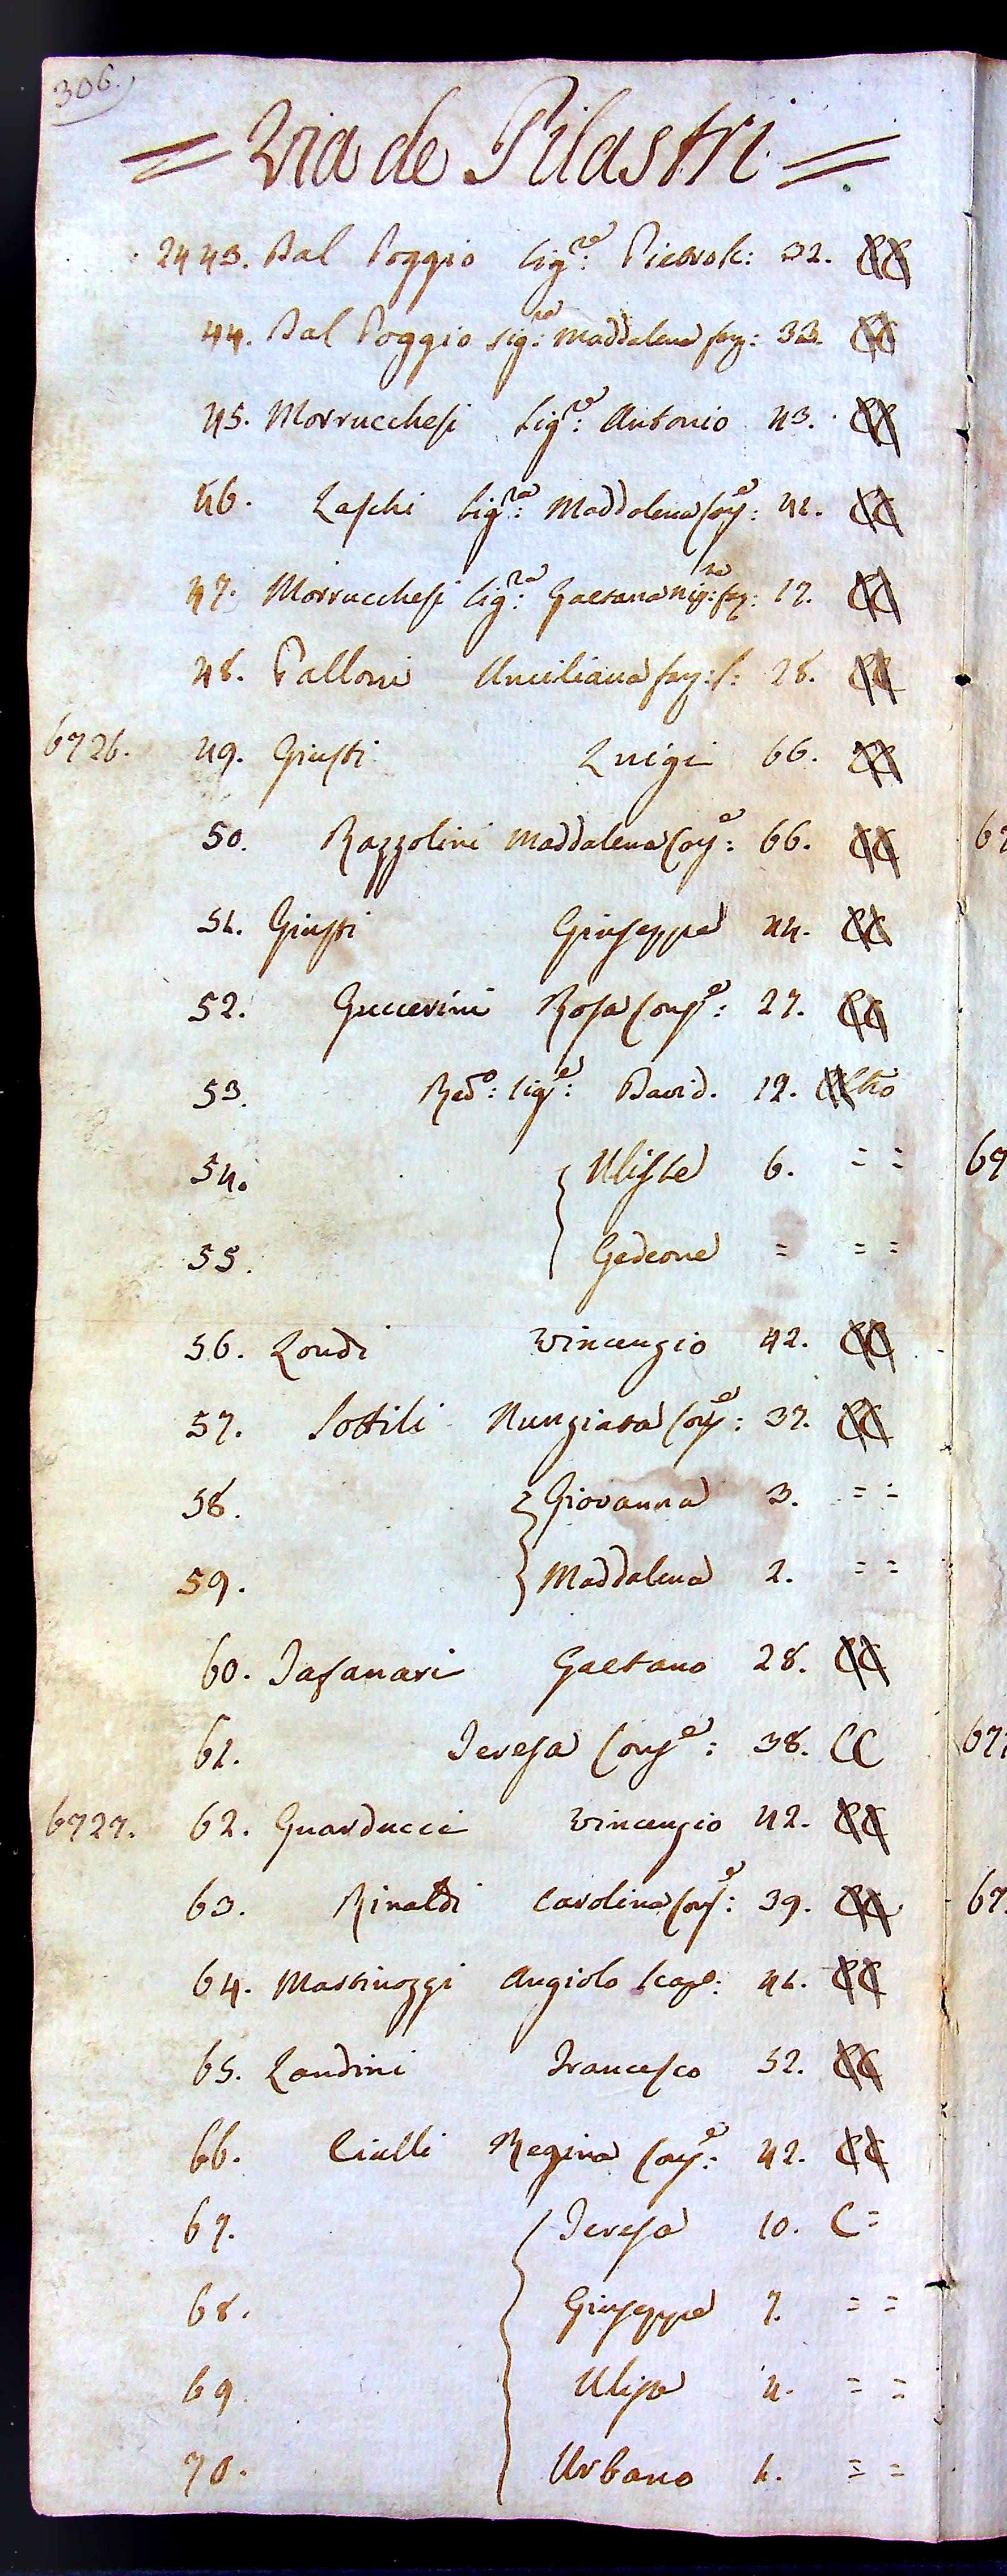 306.
= Via de Pilastri =
2443. Dal Poggio Sig.re: 32. CC
44. Dal Poggio Sig.ra: Maddalena fag: 33. CC
45. Morrucchesi Sig.re: Antonio 43. CC
46. Laschi Sig.ra: Maddalena Cog.e: 41. CC
47. Morrucchesi Sig.ra: Gaetana Nig: fag: 17. CC
48. Palloni fag: f: 28. CC
6726. 49. Giusti Luigi 66. CC
50. Razzolini Maddalena Cog.e: 66. CC
51. Giusti Giuseppe 44. CC
52. Guccerini Rosa Cong.e: 27. CC
53. Red.o: Sig.e: David. 12. CC
54. Ulisse 6. = =
55. Gedeone = = =
56. Londi Vincenzio 42. CC
57. Sottili Nunziata Cog.e: 37. CC
58. Giovanna 3. = =
59. Maddalena 2. = =
60. Tafanari Gaetano 28. CC
61. Teresa Cong.e: 38. CC
6727. 62. Guarducci Vincenzio 42. CC
63. Rinaldi Carolina Cong.e: 39. CC
64. Martinozzi Angiolo Scapo: 41. CC
65. Landini Francesco 52. CC
66. Ciulli Regina Cog.e: 42. CC
67. Teresa 10. C =
68. Giuseppe 7. = =
69. Ulisse 4. = =
70. Urbano 1. = =